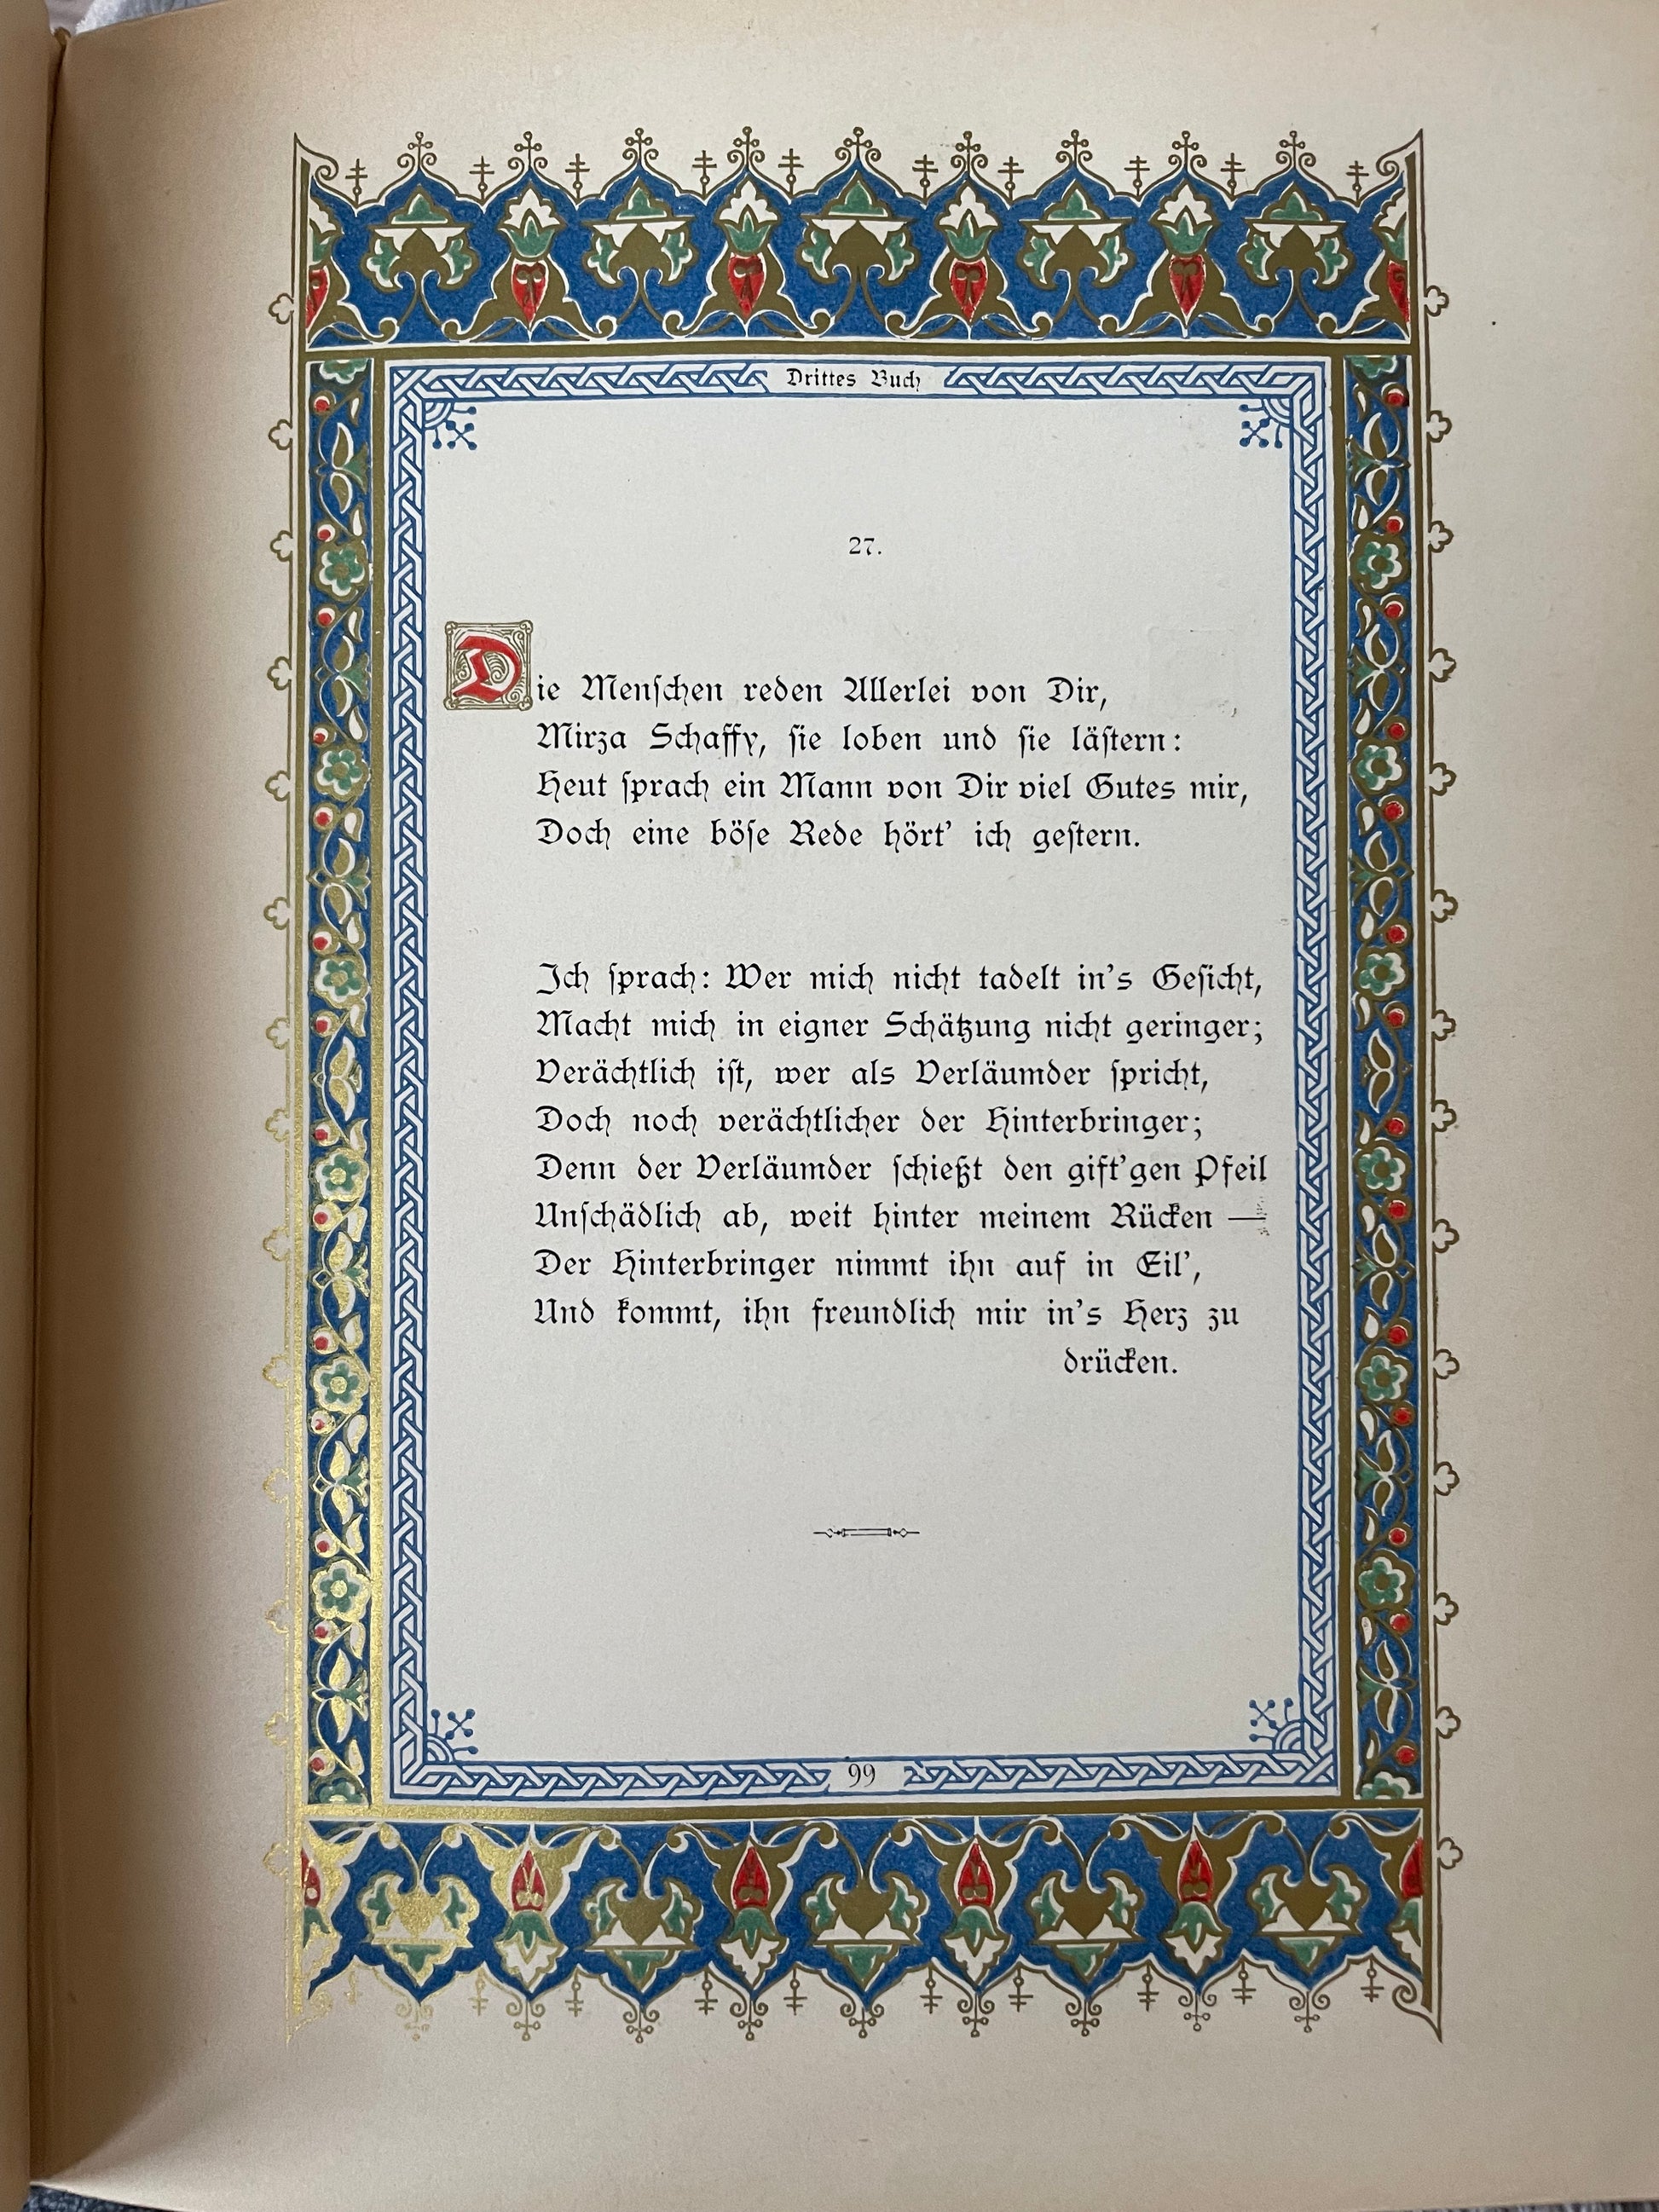 Drittes Buch
27.
Die Menſchen reden Allerlei von Dir,
Mirza Schaffy, ſie loben und ſie läſtern:
Heut ſprach ein Mann von Dir viel Gutes mir,
Doch eine böſe Rede hört' ich geſtern.
Ich ſprach: Wer mich nicht tadelt in's Geſicht,
Macht mich in eigner Schätzung nicht geringer;
Verächtlich iſt, wer als Verläumder ſpricht,
Doch noch verächtlicher der Hinterbringer;
Denn der Verläumder ſchießt den gift'gen Pfeil
Unſchädlich ab, weit hinter meinem Rücken —
Der Hinterbringer nimmt ihn auf in Eil',
Und kommt, ihn freundlich mir in's Herz zu
drücken.
99